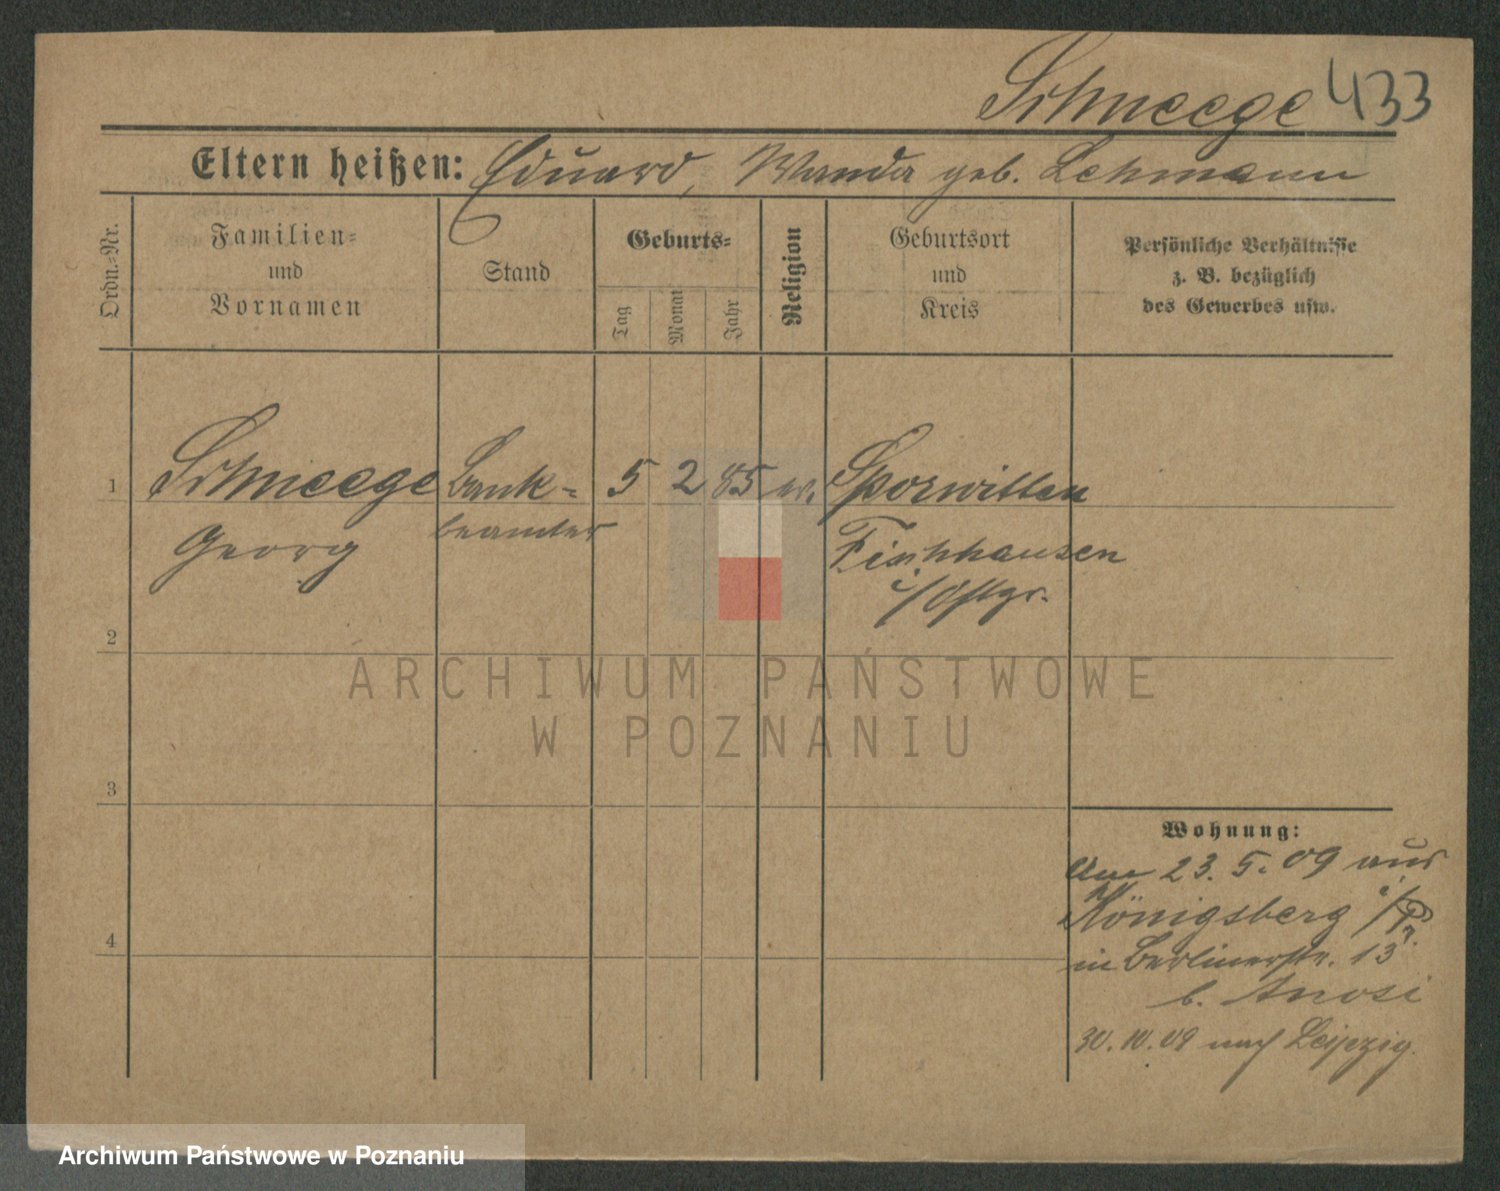 Schneege 433
Eltern heißen: Eduard, Wanda geb. Lehmann
Ordn.-Nr.
Familien-
und
Vornamen
Stand
Geburts-
Tag
Monat
Jahr
Religion
Geburtsort
und
Kreis
Persönliche Verhältnisse
z. B. bezüglich
des Gewerbes usw.
1 Schneege Bank- 5 2 85 ev. Sporwitten
Georg beamter Fischhausen
i/Ostpr.
2
3
4
Wohnung:
Am 23. 5. 09 aus
Königsberg i/Pr.
in Berlinerstr. 13
b. Anosi
30. 10. 09 nach Leipzig.
ARCHIWUM PAŃSTWOWE
W POZNANIU
Archiwum Państwowe w Poznaniu